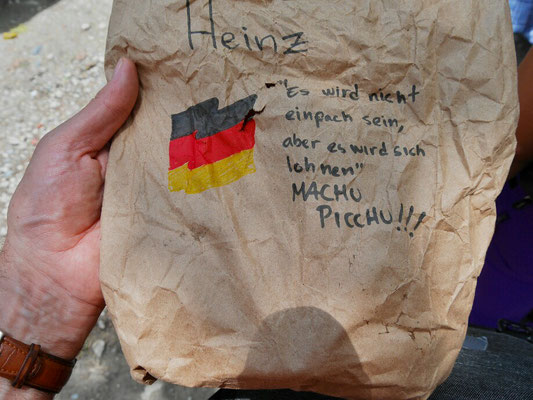 Heinz
"Es wird nicht
einpach sein,
aber es wird sich
lohnen"
MACHU
PICCHU!!!